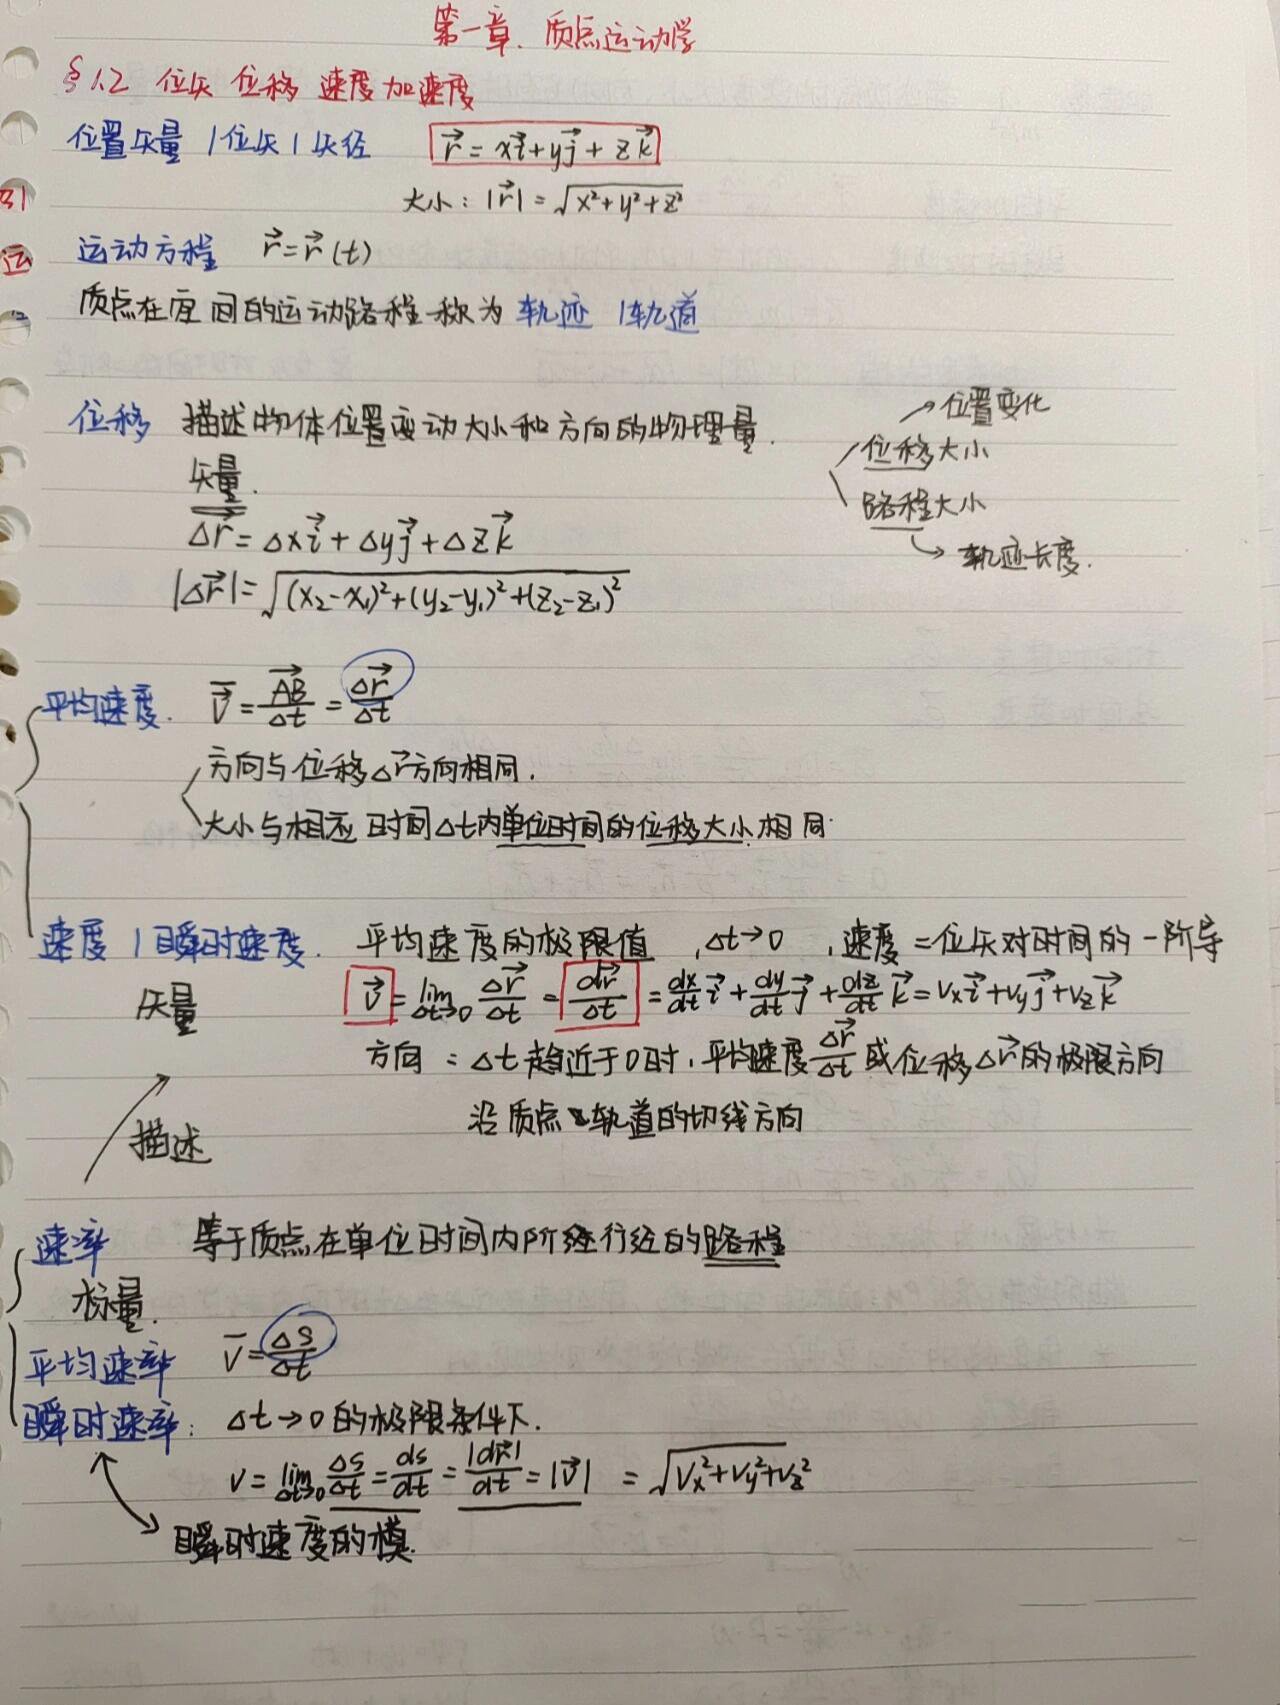 第一章. 质点运动学
§1.2 位矢 位移 速度加速度
位置矢量 | 位矢 | 矢径 $\vec{r}=x\vec{i}+y\vec{j}+z\vec{k}$
大小: $|\vec{r}|=\sqrt{x^2+y^2+z^2}$
运动方程 $\vec{r}=\vec{r}(t)$
质点在空间的运动路程称为 轨迹 | 轨道
位移 描述物体位置变动大小和方向的物理量.
矢量.
→位置变化
位移大小
路程大小
→轨迹长度.
$\vec{\Delta r}=\Delta x\vec{i}+\Delta y\vec{j}+\Delta z\vec{k}$
$|\vec{\Delta r}|=\sqrt{(x_2-x_1)^2+(y_2-y_1)^2+(z_2-z_1)^2}$
平均速度. $\overline{\vec{v}}=\frac{\vec{AB}}{\Delta t}=\frac{\Delta\vec{r}}{\Delta t}$
方向与位移$\Delta\vec{r}$方向相同.
大小与相应时间Δt内单位时间的位移大小相同.
速度 | 瞬时速度. 平均速度的极限值 , Δt→0 , 速度=位矢对时间的一阶导
矢量 $\vec{v}=\lim_{\Delta t\to 0}\frac{\Delta\vec{r}}{\Delta t}=\frac{d\vec{r}}{\Delta t}=\frac{dx}{dt}\vec{i}+\frac{dy}{dt}\vec{j}+\frac{dz}{dt}\vec{k}=v_x\vec{i}+v_y\vec{j}+v_z\vec{k}$
方向 = Δt趋近于0时, 平均速度$\frac{\Delta\vec{r}}{\Delta t}$或位移$\Delta\vec{r}$的极限方向
沿质点轨道的切线方向
描述
速率 等于质点在单位时间内所经行经的路程
标量.
平均速率 $\overline{v}=\frac{\Delta S}{\Delta t}$
瞬时速率: Δt→0的极限条件下.
$v=\lim_{\Delta t\to 0}\frac{\Delta S}{\Delta t}=\frac{ds}{dt}=\frac{|d\vec{r}|}{dt}=|\vec{v}|=\sqrt{v_x^2+v_y^2+v_z^2}$
瞬时速度的模.